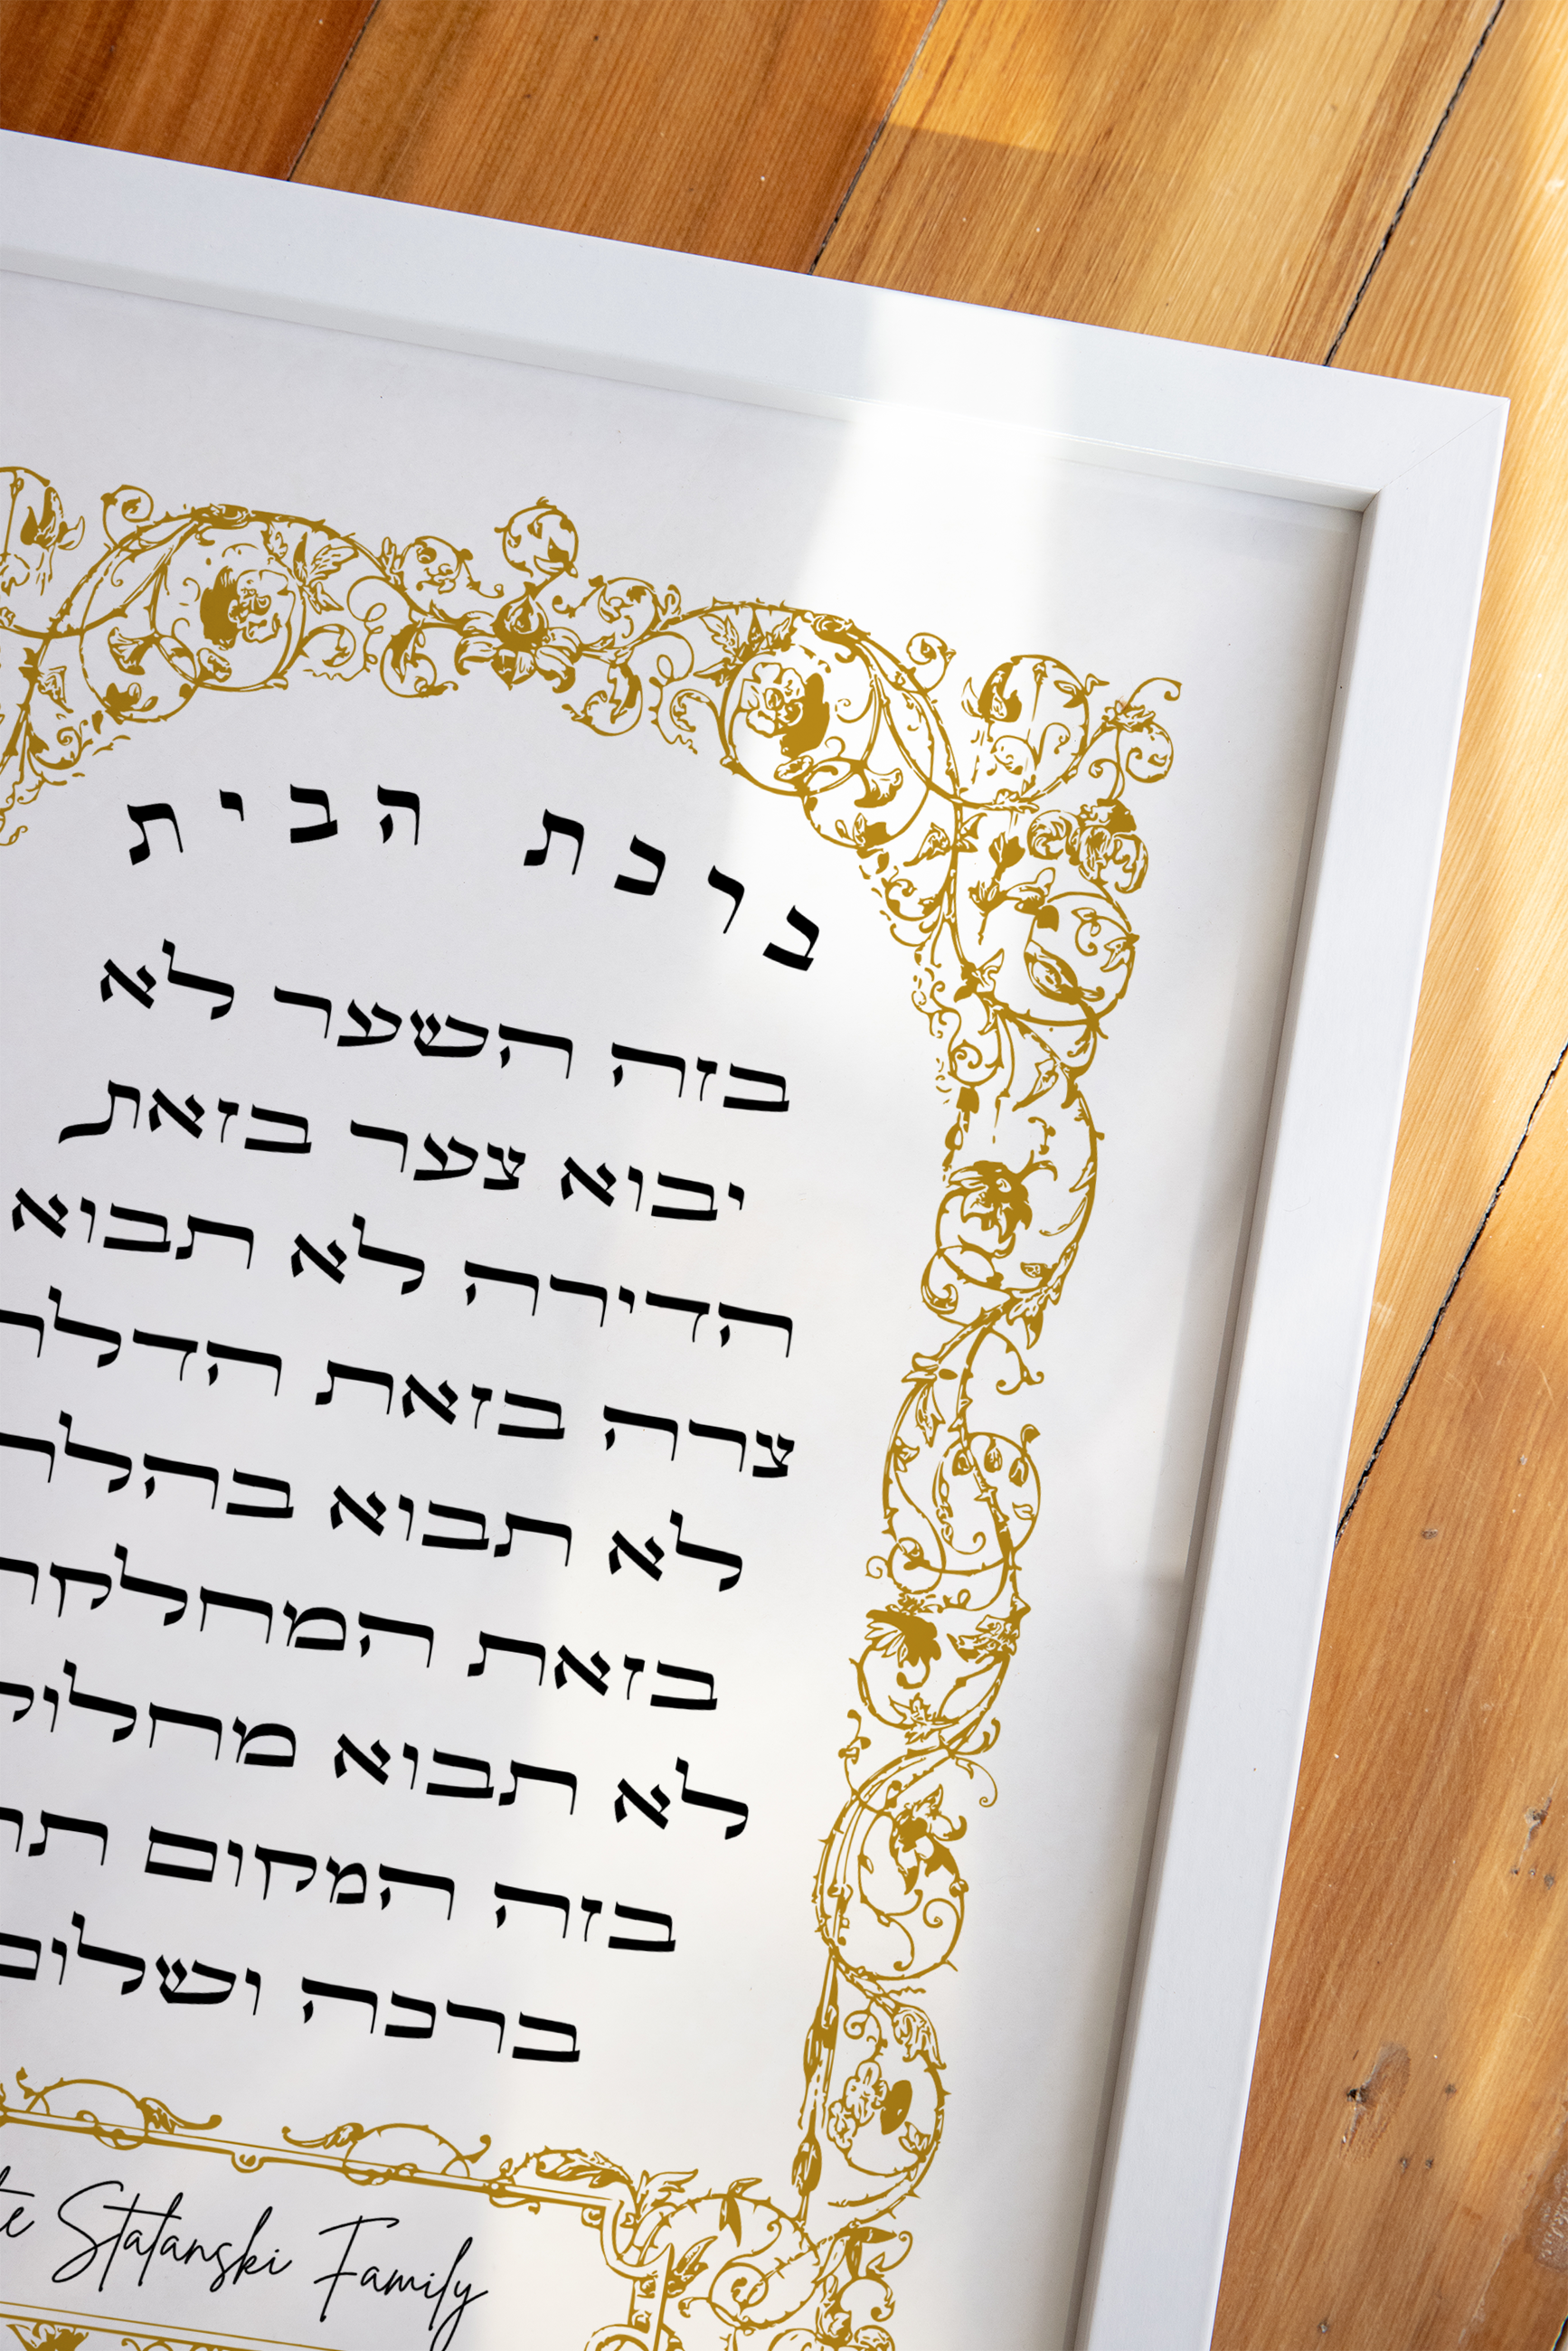 ברכת הבית
בזה השער לא
יבוא צער בזאת
הדירה לא תבוא
צרה בזאת
לא תבוא
בזאת
לא תבוא
בזה המקום
ברכה ושלום
Statanski Family